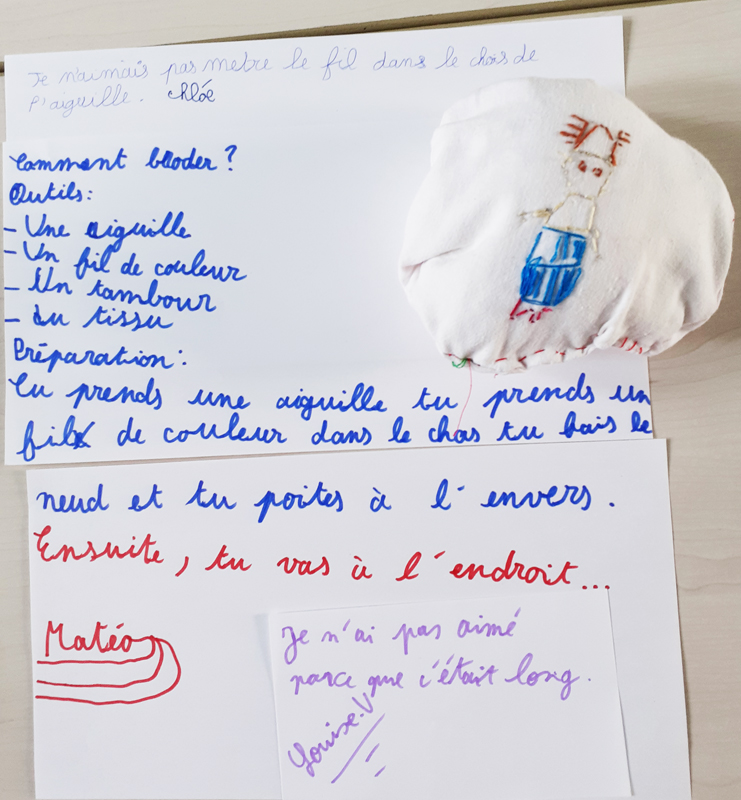 Je n'aimais pas metre le fil dans le chas de
l'aiguille. chlóe
Comment broder?
Outils:
- Une aiguille
- Un fil de couleur
- Un tambour
- Du tissu
Préparation:
Tu prends une aiguille tu prends un
fil de couleur dans le chas tu fais le
neud et tu poites à l'envers.
Ensuite, tu vas à l'endroit...
Matéo
Je n'ai pas aimé
parce que c'était long.
Louise.V